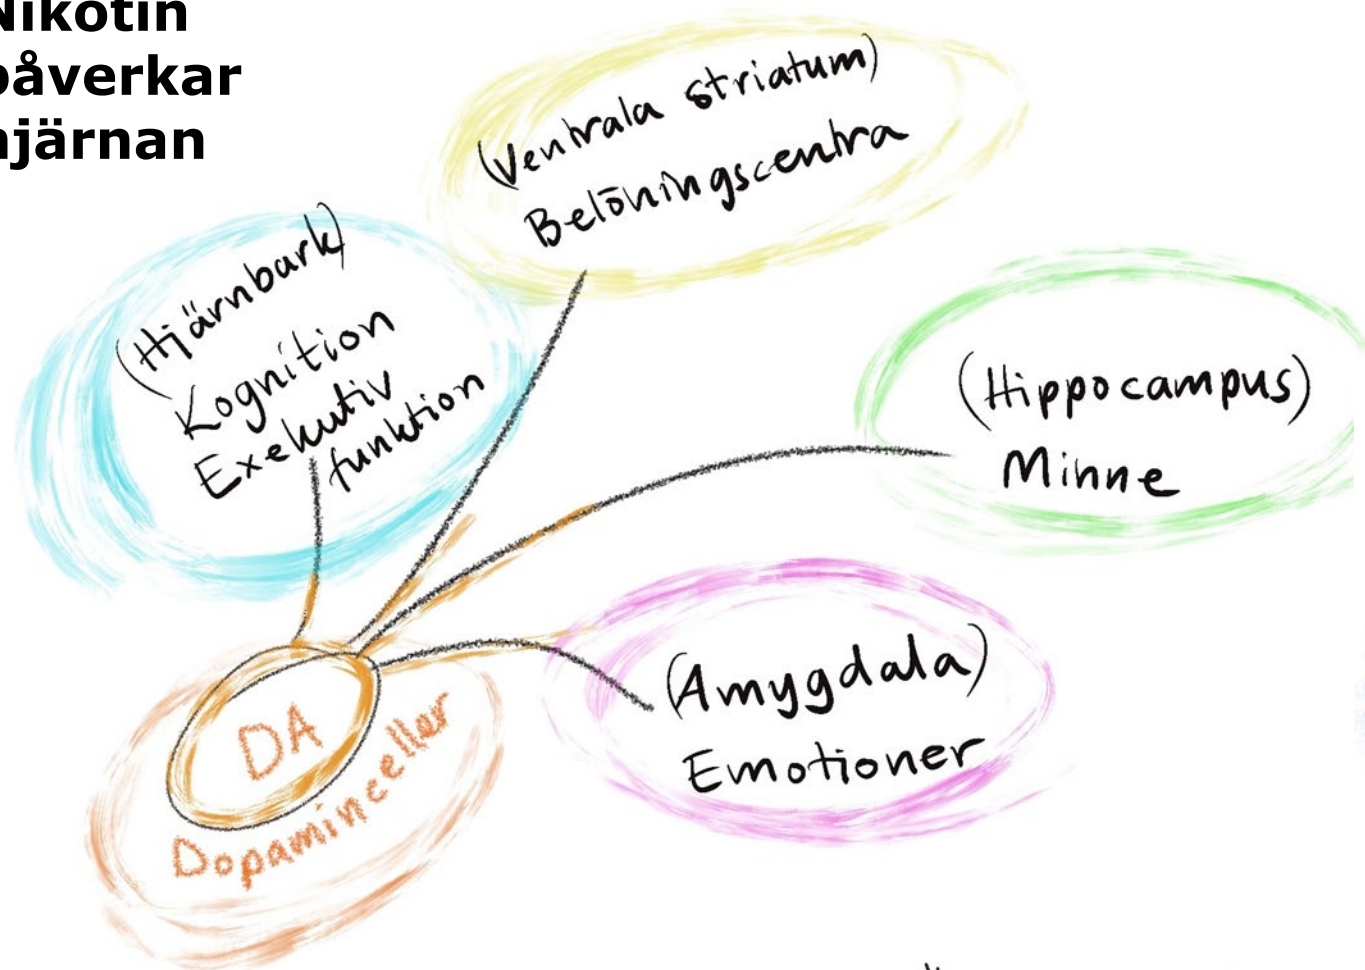 Nikotin
påverkar
hjärnan
(Ventrala striatum)
Belöningscentra
(Hjärnbark)
Kognition
Exekutiv
funktion
(Hippocampus)
Minne
(Amygdala)
Emotioner
DA
Dopaminceller